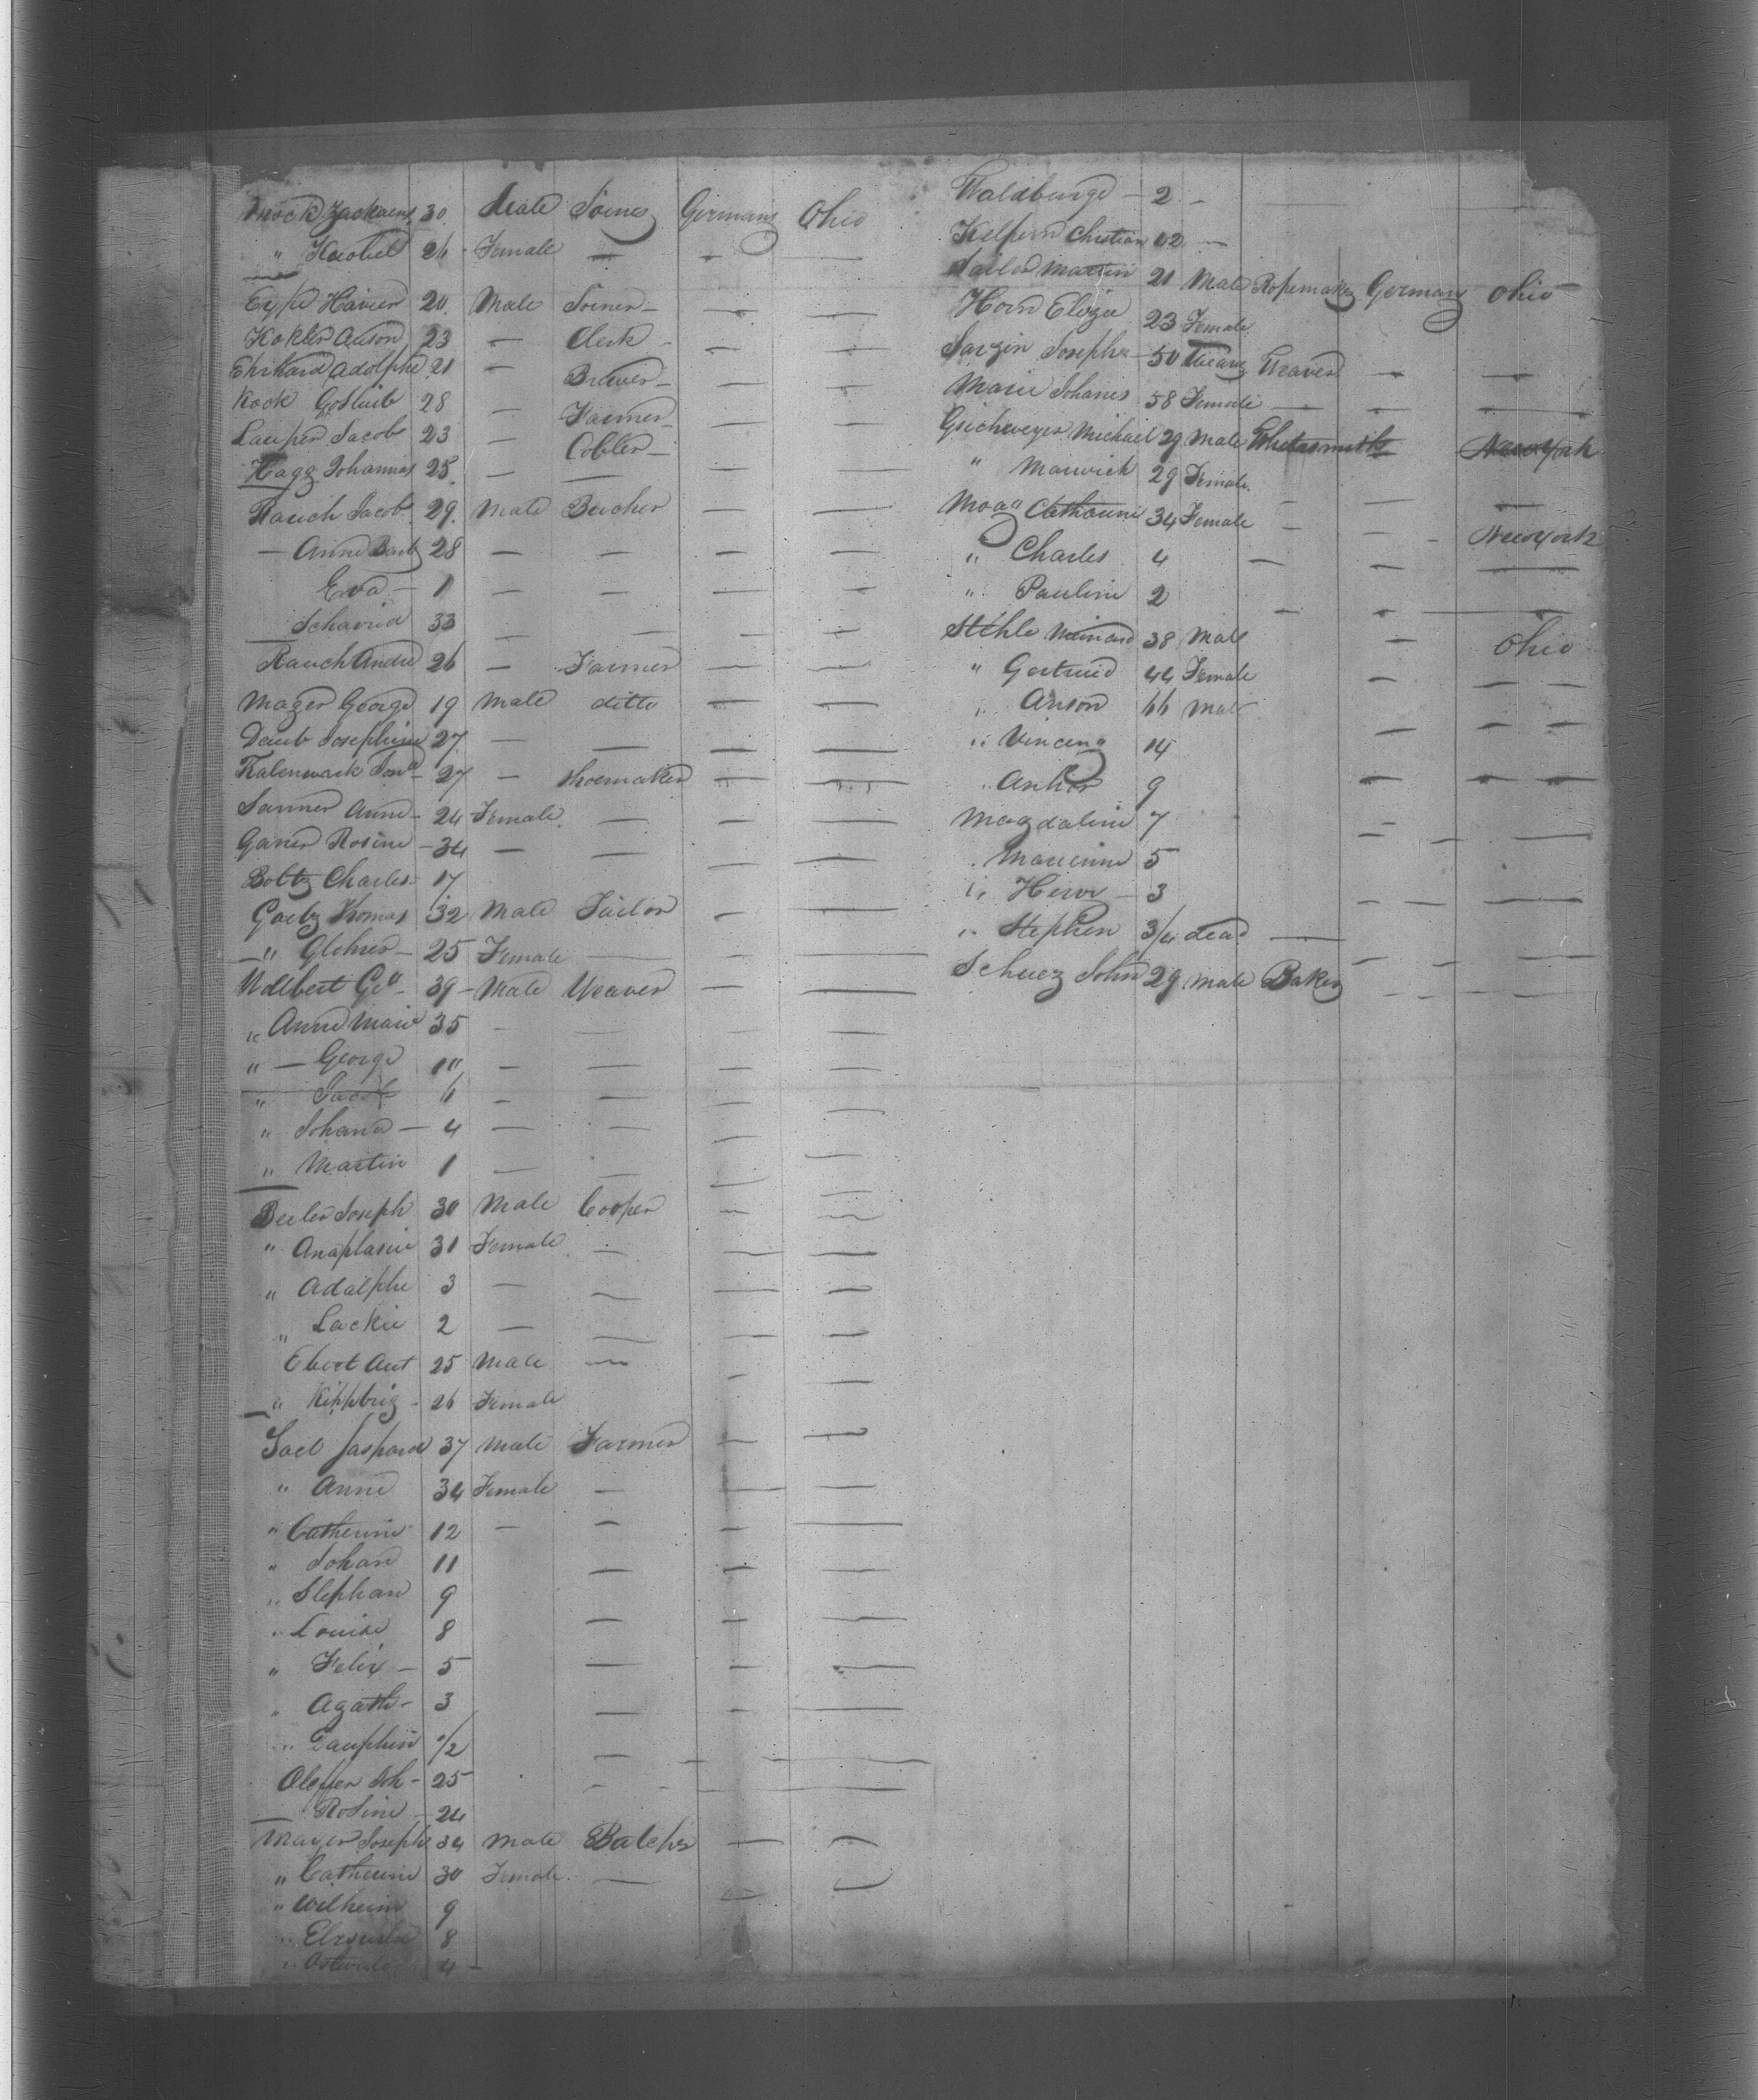 Mock Zachaeus 30 Male Joiner Germany Ohio
" Knobel 26 - Female — — —
Eype Havier 20. Male Joiner — — —
Kokler Anson 23 — Clerk — —
Ehrhard Adolphe 21 — Brewer — — —
Kock Gotlieb 28 — Farmer — — —
Lauper Jacob 23 — Cobler — — —
Hagg Johannas 25. — — — —
Rauch Jacob 29. Male Bucher — —
— Anne Barb 28 — — — —
Eva — 1 — — — —
Schavrid 33 — — — —
Rauch Andre 26 — Farmer — —
Mager George 19 Male ditto — —
Daub Josephine 27 — — — —
Kalenwark Jona — 27 — Shoemaker — —
Sanner Anne — 24 Female. — — —
Ganer Rosine — 34 — — — —
Boltz Charles - 17
Goetz Thomas 32 Male Tailor — —
— " Glehrer — 25 Female — — —
Adlbert Geo — 39 — Male Weaver — —
" Anne Marie 35 — — —
" — George 10 — — — —
" Jacob 6 — — — —
" Johana — 4 — — — —
" Martin 1 — — — —
Beeler Joseph 30 Male Cooper — —
" Anaplasie 31 Female — — —
" Adalphe 3 — — — —
" Lackie 2 — — — —
Ebert Ant 25 Male — — —
" Kippbrig - 26 Female
Joel Jaspard 37 Male Farmer — —
" Anne 34 Female — — —
" Catherine 12 — — — —
" Johan 11 — — —
" Stephan 9
" Louise 8 — — —
" Felix — 5 — — —
" Agath - 3 — —
" Dauphin 1/2 — — —
Oleyer Joh - 25 — — —
— Rosine — 24
Mayer Joseph 34 Male Batcher — —
" Catherine 30 Female. — — —
" Wilheim 9
" Elrsula 8
" 4 -
Waldburge — 2 —
Kelpern Christian 02 —
Sailer Martin 21 Male Ropemaker Germany Ohio
Horn Elizie 23 Female.
Sarzin Joseph — 50 Weaver — —
Marie Johanes 58 Female — — —
Gsichweyer Michael 29 Male Whitesmith New York
" Marwick 29 Female.
Moag Catharine 34 Female — — New York
" Charles 4 — — —
" Pauline 2 — — —
Stehle Meinard 38 Male — Ohio
" Gertruid 44 Female — — —
" Anson 66 Male — — —
" Vincenz 14
" Anhor 9 — — —
Magdaline 7 — — —
" Marienne 5
" Herw — 3 — — —
" Stephen 3/4 dead —
Schuez John 29 Male Baker — — —